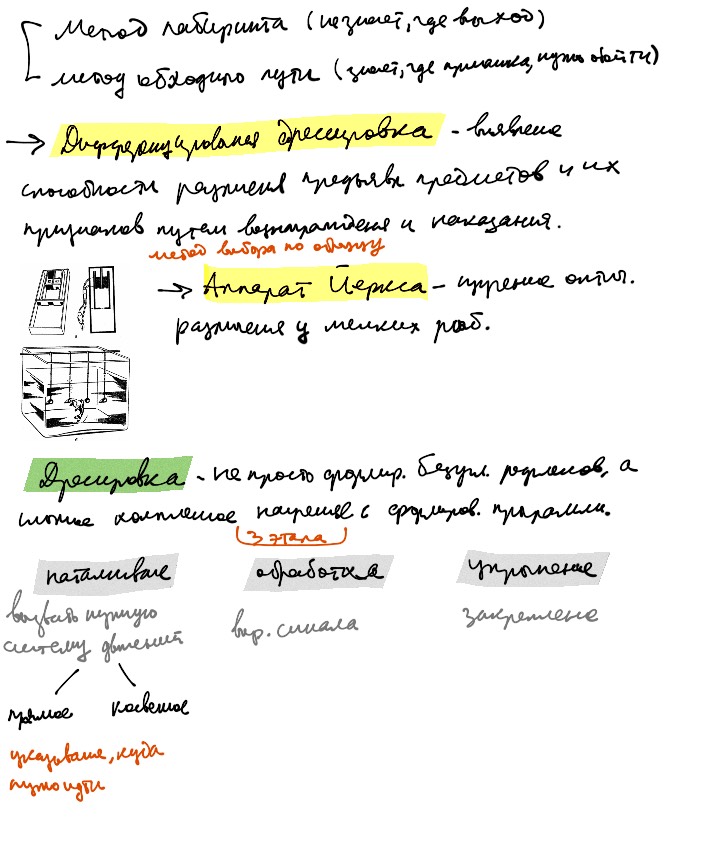 Метод лабиринта (не знает, где выход)
метод обходного пути (знает, где приманка, нужно обойти)
→ Дифференцированная дрессировка - выявление
способности различения предъявл предметов и их
признаков путем вознаграждения и наказания.
метод выбора по образцу
→ Аппарат Йеркса - изучение оптич.
различения у мелких
Дрессировка - не просто формир. безусл. рефлексов, а
сложное комплексное научение с формиров. программ.
3 этапа
наталкивание обработка упрочнение
вызвать нужную
систему движений
выр. сигнала
закрепление
прямое косвенное
указывание, куда
нужно идти